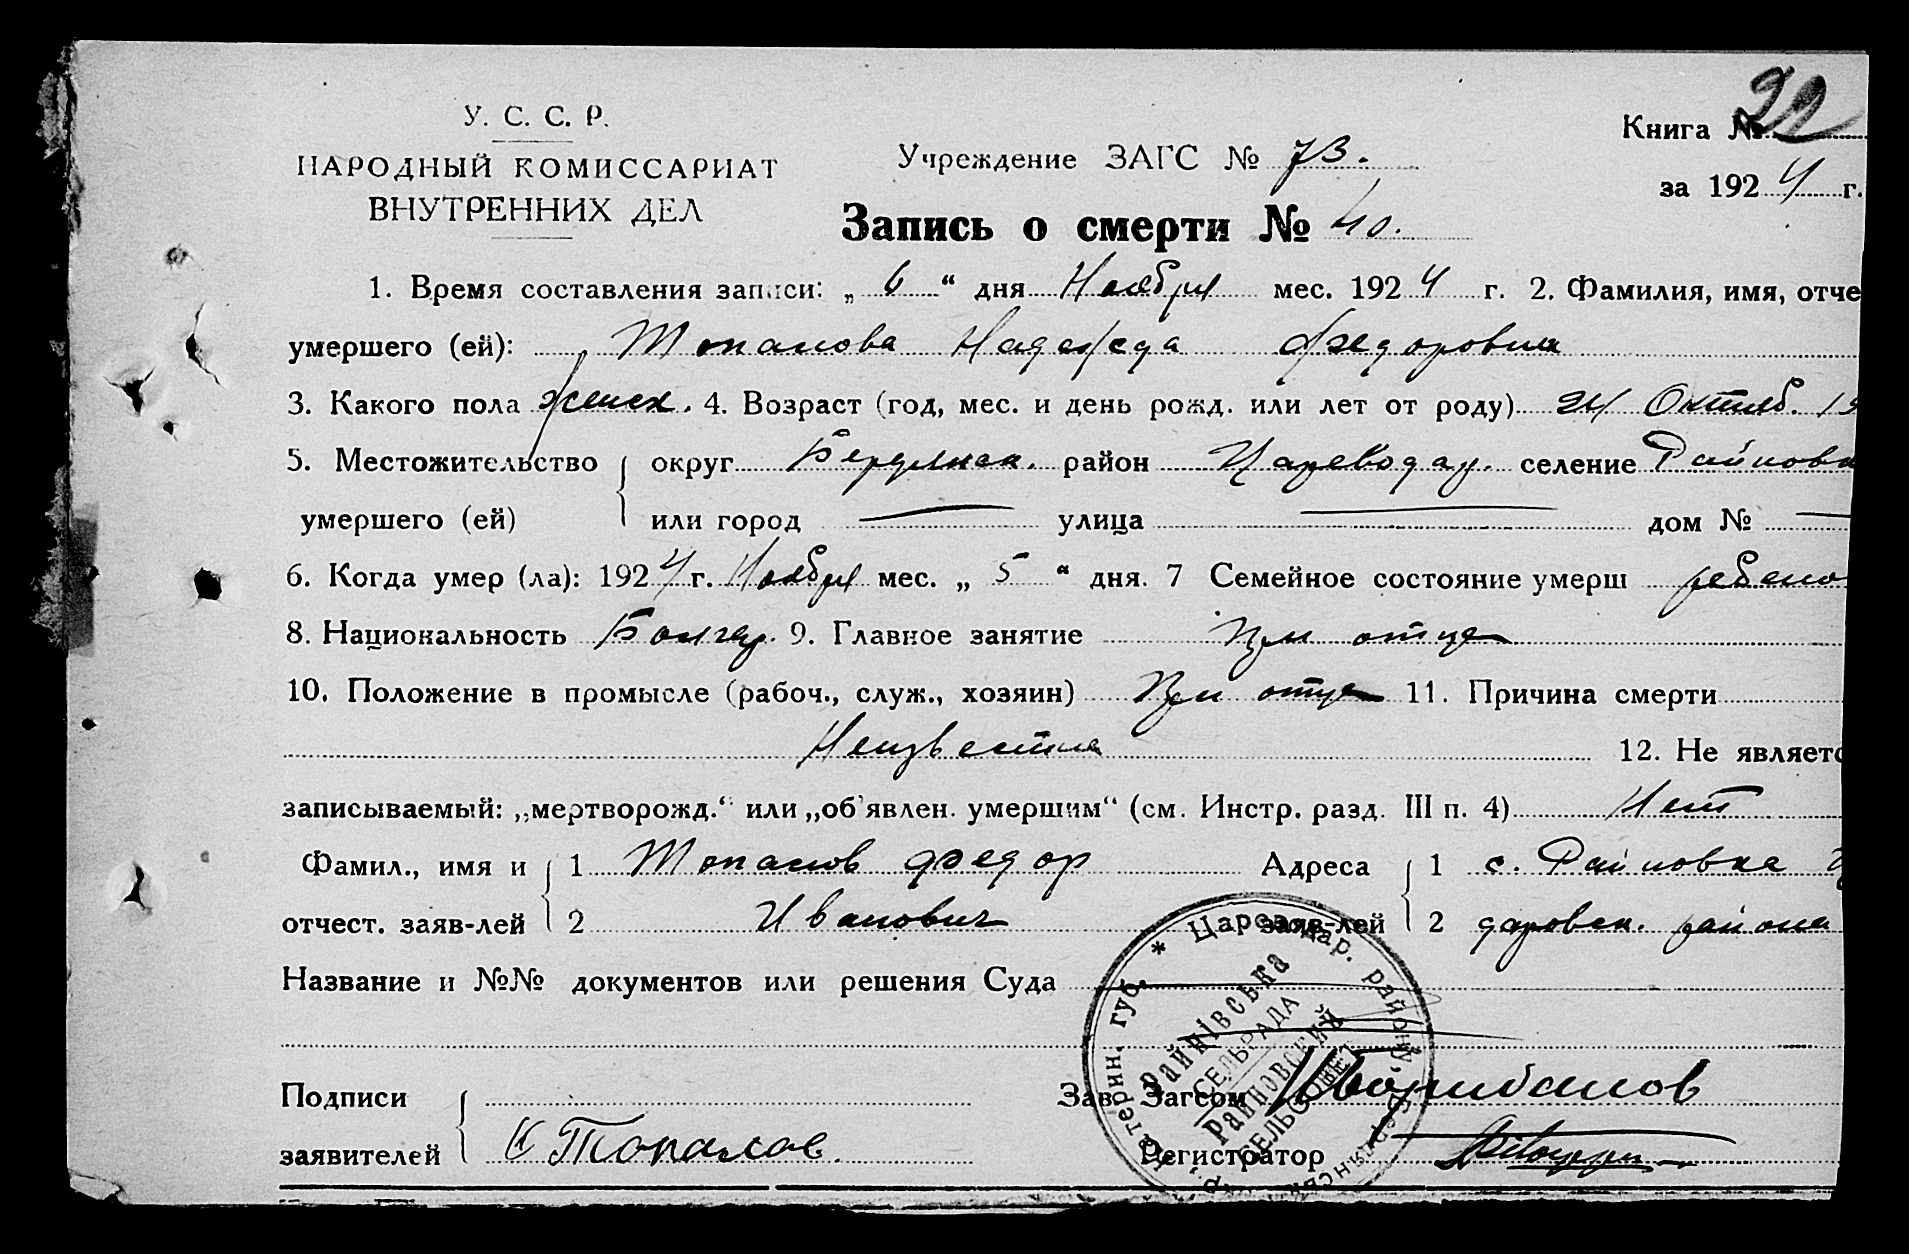 У. С. С. Р.
НАРОДНЫЙ КОМИССАРИАТ
ВНУТРЕННИХ ДЕЛ
Учреждение ЗАГС № 73.
Книга № 22
за 1924 г.
Запись о смерти № 40.
1. Время составления записи: „ 6 “ дня Ноября мес. 1924 г. 2. Фамилия, имя, отче
умершего (ей): Топалова Надежда Федоровна
3. Какого пола женск. 4. Возраст (год, мес. и день рожд. или лет от роду) 24 Октяб. 19
5. Местожительство округ Бердянск. район Цареводар. селение Райновка
умершего (ей) или город — улица — дом № —
6. Когда умер (ла): 1924 г. Ноября мес. „ 5 “ дня. 7 Семейное состояние умерш ребено
8. Национальность Болгар. 9. Главное занятие При отце
10. Положение в промысле (рабоч., служ., хозяин) При отце 11. Причина смерти
Неизвестна 12. Не являетс
записываемый: „мертворожд.“ или „об'явлен. умершим“ (см. Инстр. разд. III п. 4) Нет
Фамил., имя и 1 Топалов Федор Адреса 1 с. Райновка
отчест. заяв-лей 2 Иванович заяв-лей 2 даровск. района
Название и №№ документов или решения Суда
Подписи Зав. Загсом
заявителей Топалов. Регистратор
* Цареводар. району, Бердянської окр., Катерин. губ.
Райнівська
СЕЛЬРАДА
Райновский
СЕЛЬСОВЕТ